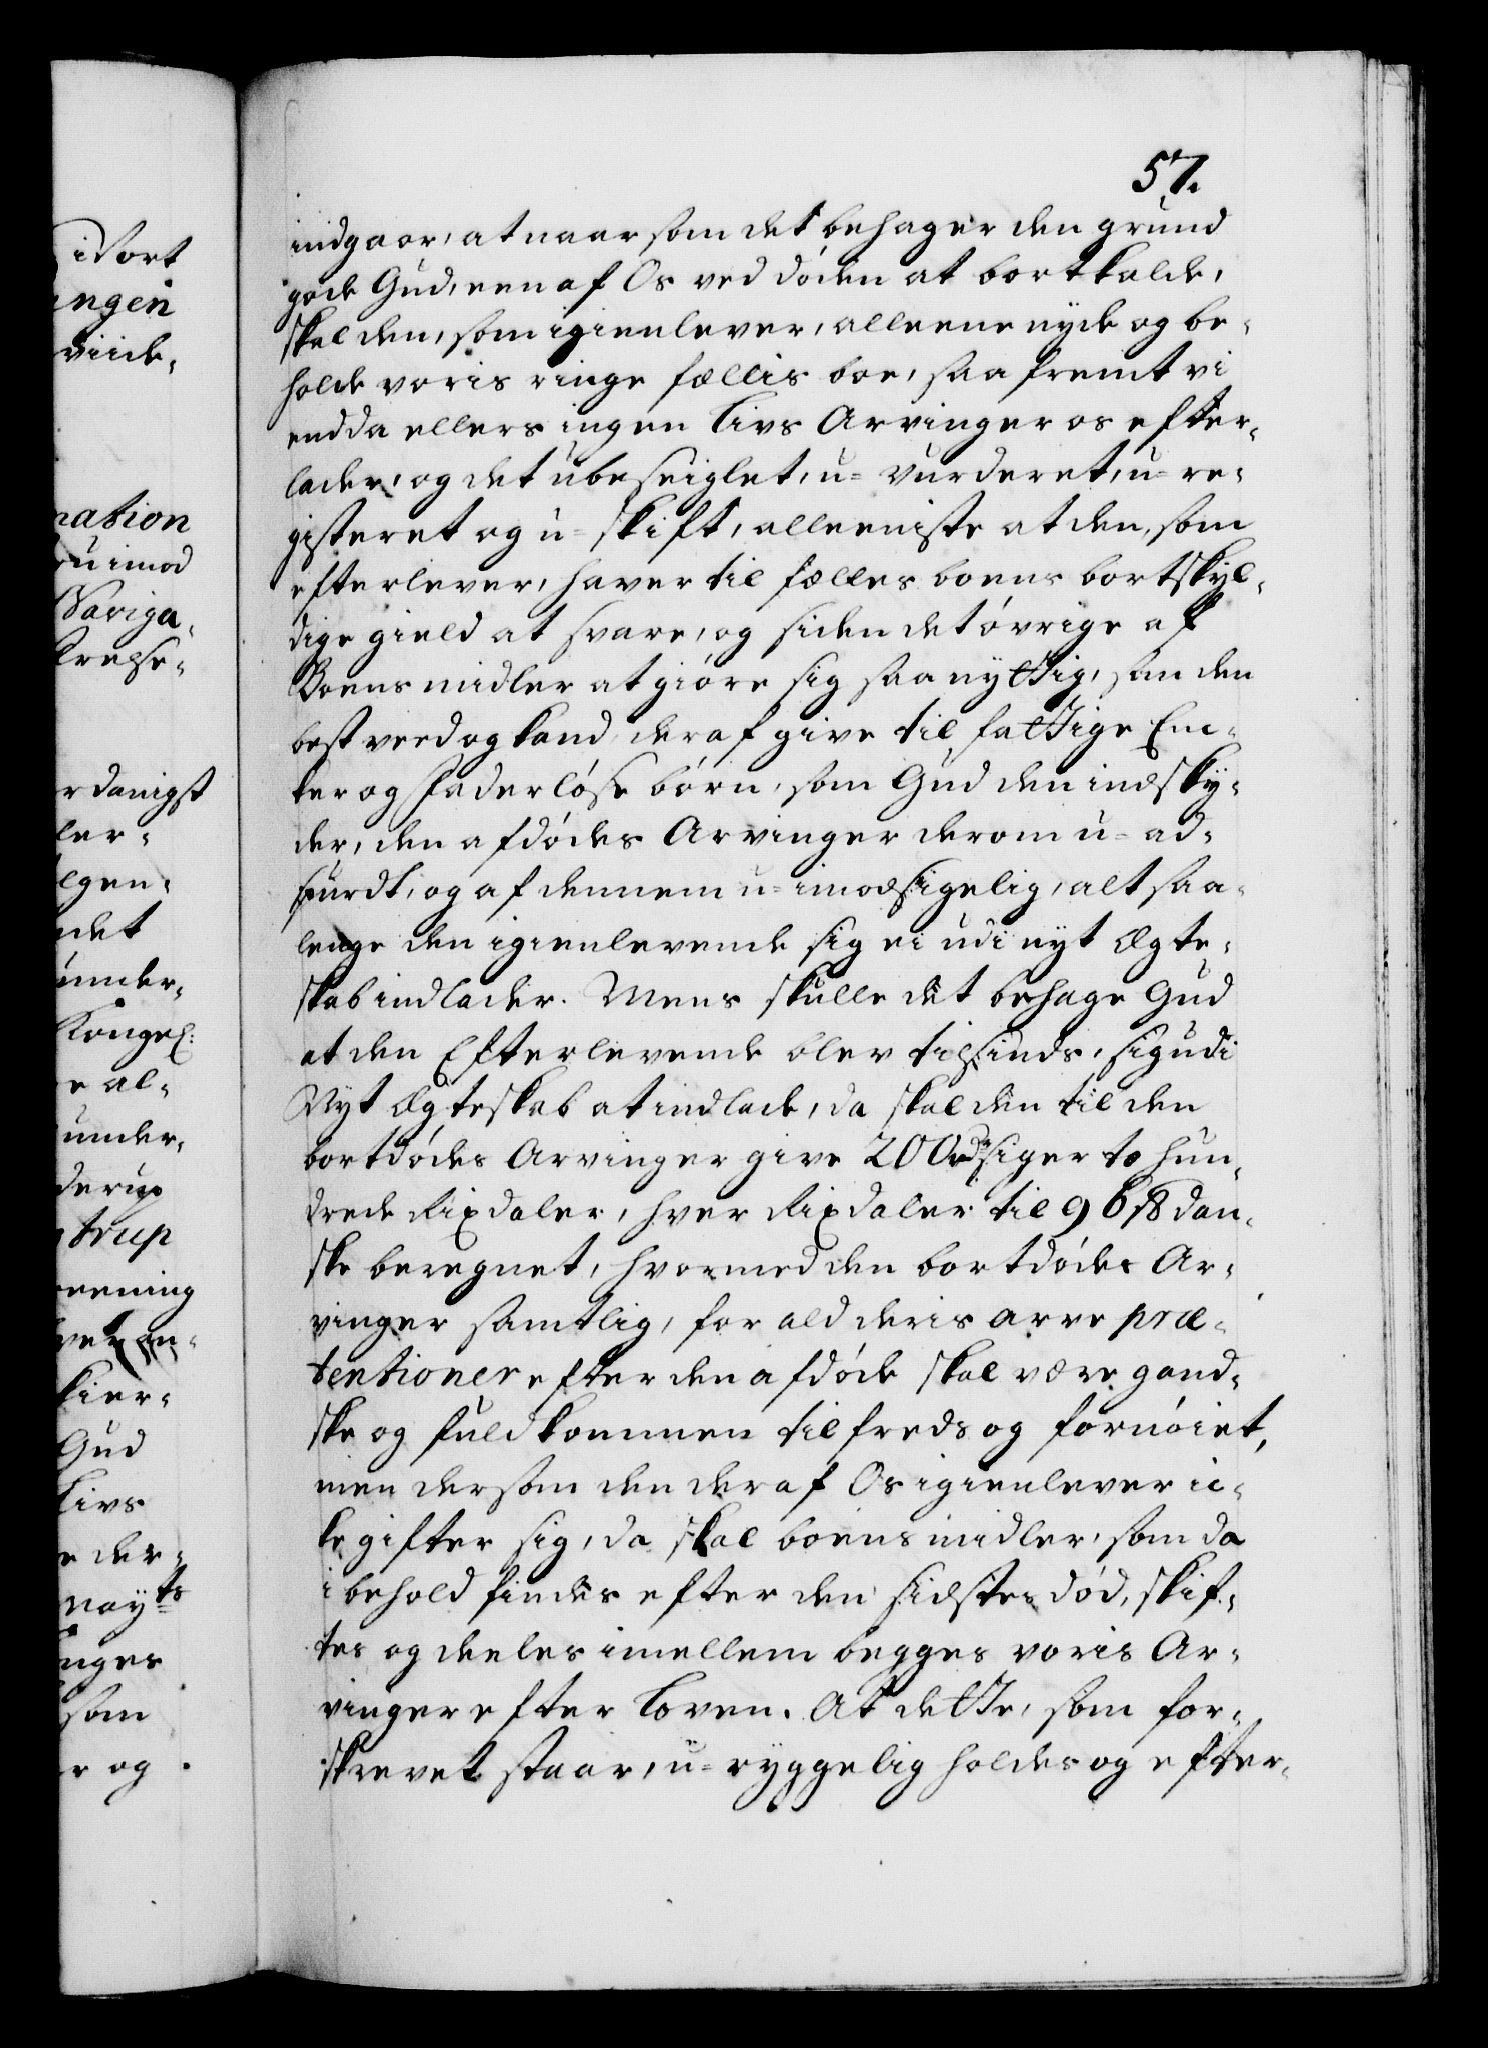 57.
indgaar, at naar som det behager den grund
gode Gud, een af Os ved døden at bortkalde,
skal den, som igienlever, alleene nyde og be-
holde voris ringe fællis boe, saa fremt vi
endda ellers ingen Livs Arvinger os efter-
lader, og det ubeseiglet, u-vurderet, u-re-
gisteret og u-skift, alleeniste at den, som
efterlever, haver til fælles boens bortskyl-
dige gield at svare, og siden det øvrige af
Boens midler at giøre sig saa nyttig, som den
best veed og kand, deraf give til fattige En-
ker og Faderløse børn, som Gud den indsky-
der, den afdødes Arvinger derom u-ad-
spurdt, og af dennem u-imodsigelig, alt saa-
lenge den igienlevende sig ei udi nyt Ægte-
skab indlader. Mens skulle det behage Gud
at den Efterlevende blev tilsinds, sig udi
Nyt Ægteskab at indlade, da skal den til den
bortdødes Arvinger give 200 rdr siger to hun-
drede Rixdaler, hver Rixdaler til 96 ß dan-
ske beregnet, hvormed den bortdødes Ar-
vinger samtlig, for ald deris arve præ-
tentioner efter den afdøde skal være gand-
ske og fuldkommen tilfreds og fornøiet,
men dersom den der af Os igienlever ic-
ke gifter sig, da skal boens midler, som da
i behold findes efter den sidstes død, skif-
tes og deeles imellem begges voris Ar-
vinger efter Loven. At dette, som for-
skrevet staar, u-ryggelig holdes og efter-
i Vort
ungen
viide-
nation
imod
Naviga-
krelse-
rdanigst
ler-
lgen-
ndet
under-
Kongel:
e al-
under-
derup
trup
reening
kier-
Gud
Livs
e der-
May:ts
unges
som
r og